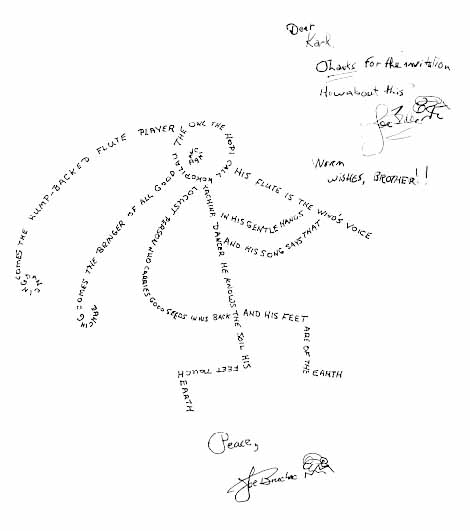 Dear
Thanks for the invitation
How about this
Joe
Warm
WISHES, BROTHER!!
DANCING COMES THE HUMP-BACKED FLUTE PLAYER, THE ONE THE HOPI CALL
DANCING COMES THE BRINGER OF ALL GOOD
THE
KACHINA DANCER HE KNOWS THE SOIL HIS FEET TOUCH EARTH
HIS FLUTE IS THE WIND'S VOICE
IN HIS GENTLE HANDS
AND HIS SONG SAYS THAT
LOCUST PERSON WHO CARRIES GOOD SEEDS IN HIS BACK AND HIS FEET ARE OF THE EARTH
Peace,
Joe Bruchac